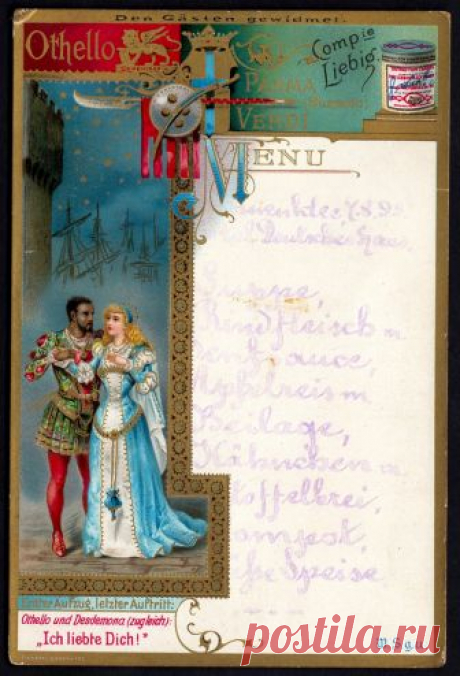 Den Gästen gewidmet.
Othello
Compie
Liebig.
PARMA
VERDI
MENU
7.8.9
Deutsches Haus
Suppe,
Rindfleisch m
Senfsauce,
Apfelreis m
Beilage,
Hähnchen m
toffelbrei,
Compot,
Speise
Erster Aufzug, letzter Auftritt:
Othello und Desdemona (zugleich):
„Ich liebte Dich!"
postila.ru